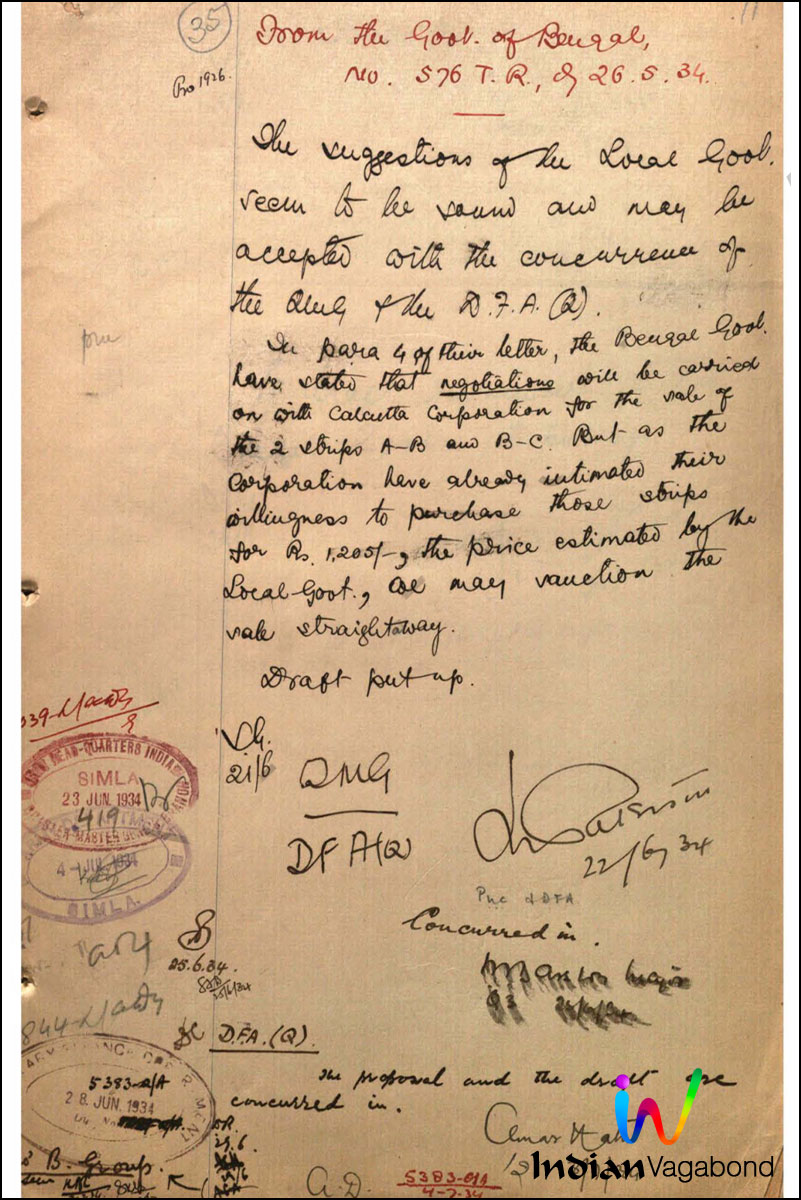 35
From the Govt. of Bengal,
Pro 1926.
No. 576 T.R., d/ 26.5.34.
The suggestions of the Local Govt.
seem to be sound and may be
accepted with the concurrence of
the QMG & the D.F.A. (Q).
In para 4 of their letter, the Bengal Govt.
have stated that negotiations will be carried
on with Calcutta Corporation for the sale of
the 2 strips A-B and B-C. But as the
Corporation have already intimated their
willingness to purchase those strips
for Rs. 1,205/-, the price estimated by the
Local Govt., we may sanction the
sale straightaway.
Draft put up.
21/6
QMG
DFA(Q)
HEAD-QUARTERS INDIA
SIMLA
23 JUN. 1934
419
MASTER GENERAL
SIMLA.
22/6/34
& DFA
Concurred in.
25.6.34.
D.F.A. (Q).
5383-
28 JUN. 1934
The proposal and the draft are
concurred in.
B. Group.
A.D.
5383-
4-7-34
IndianVagabond